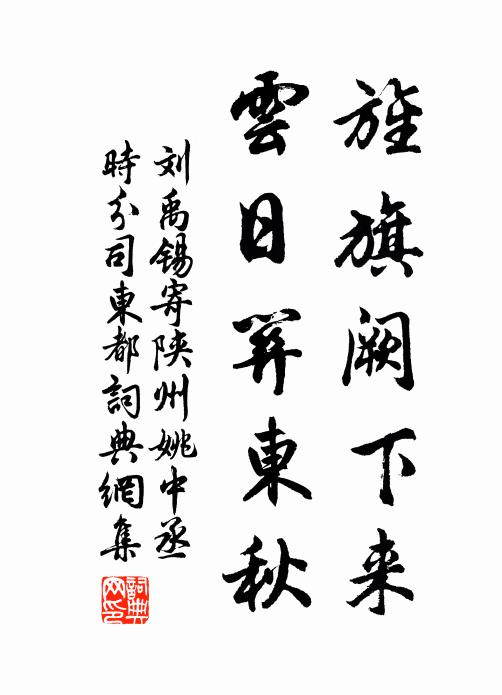 旌旗阙下来
雲日關東秋
刘禹锡寄陕州姚中丞
時分司東都詞典網集
詞典网印